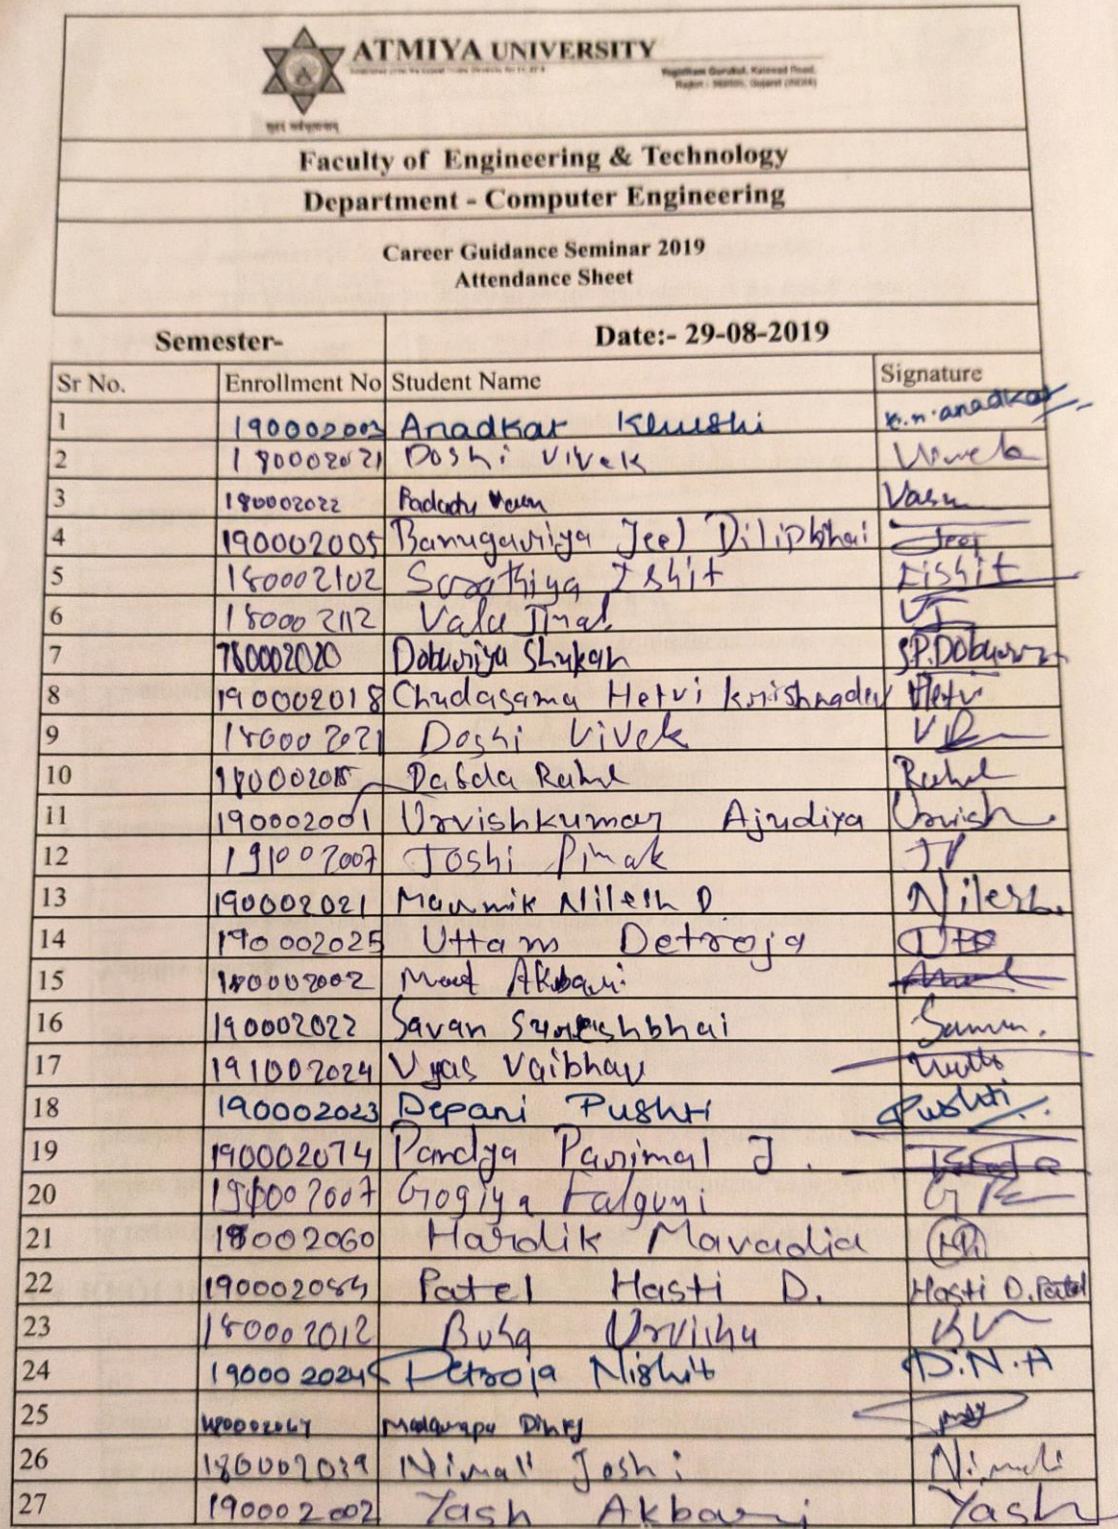 ATMIYA UNIVERSITY
Yogidham Gurukul, Kalawad Road,
Rajkot - 360005, Gujarat (INDIA)
Faculty of Engineering & Technology
Department - Computer Engineering
Career Guidance Seminar 2019
Attendance Sheet
Semester- Date:- 29-08-2019
Sr No. Enrollment No Student Name Signature
1 190002003 Anadkat Khushi k.n.anadkat
2 180002021 Doshi Vivek Vivek
3 180002022 Vasu
4 190002005 Banugariya Jeel Dilipbhai Jeel
5 180002102 Sorathiya Ishit Ishit
6 180002112 Vala Jinal VJ
7 180002020 Dobariya Shukan S.P.Dobariya
8 190002018 Chudasama Hetvi Krishnadev Hetvi
9 180002021 Doshi Vivek VD
10 180002015 Dasda Rahul Rahul
11 190002001 Urvishkumar Ajudiya Urvish
12 191002007 Joshi Pinak JP
13 190002021 Maumik Nilesh D Nilesh
14 190002025 Uttam Detroja
15 180002002 Meet Akbari
16 190002022 Savan Sureshbhai Savan
17 191002024 Vyas Vaibhav
18 190002023 Depani Pushti Pushti
19 190002074 Pandya Parimal J.
20 Gogiya Falguni
21 180002060 Hardik Mavadia HM
22 190002084 Patel Hasti D. Hasti D.Patel
23 180002012 Buha Urvisha
24 190002024 Detroja Nishit D.N.A
25 180002067 Dinky
26 180002039 Nirmali Joshi Nirmali
27 190002002 Yash Akbari Yash